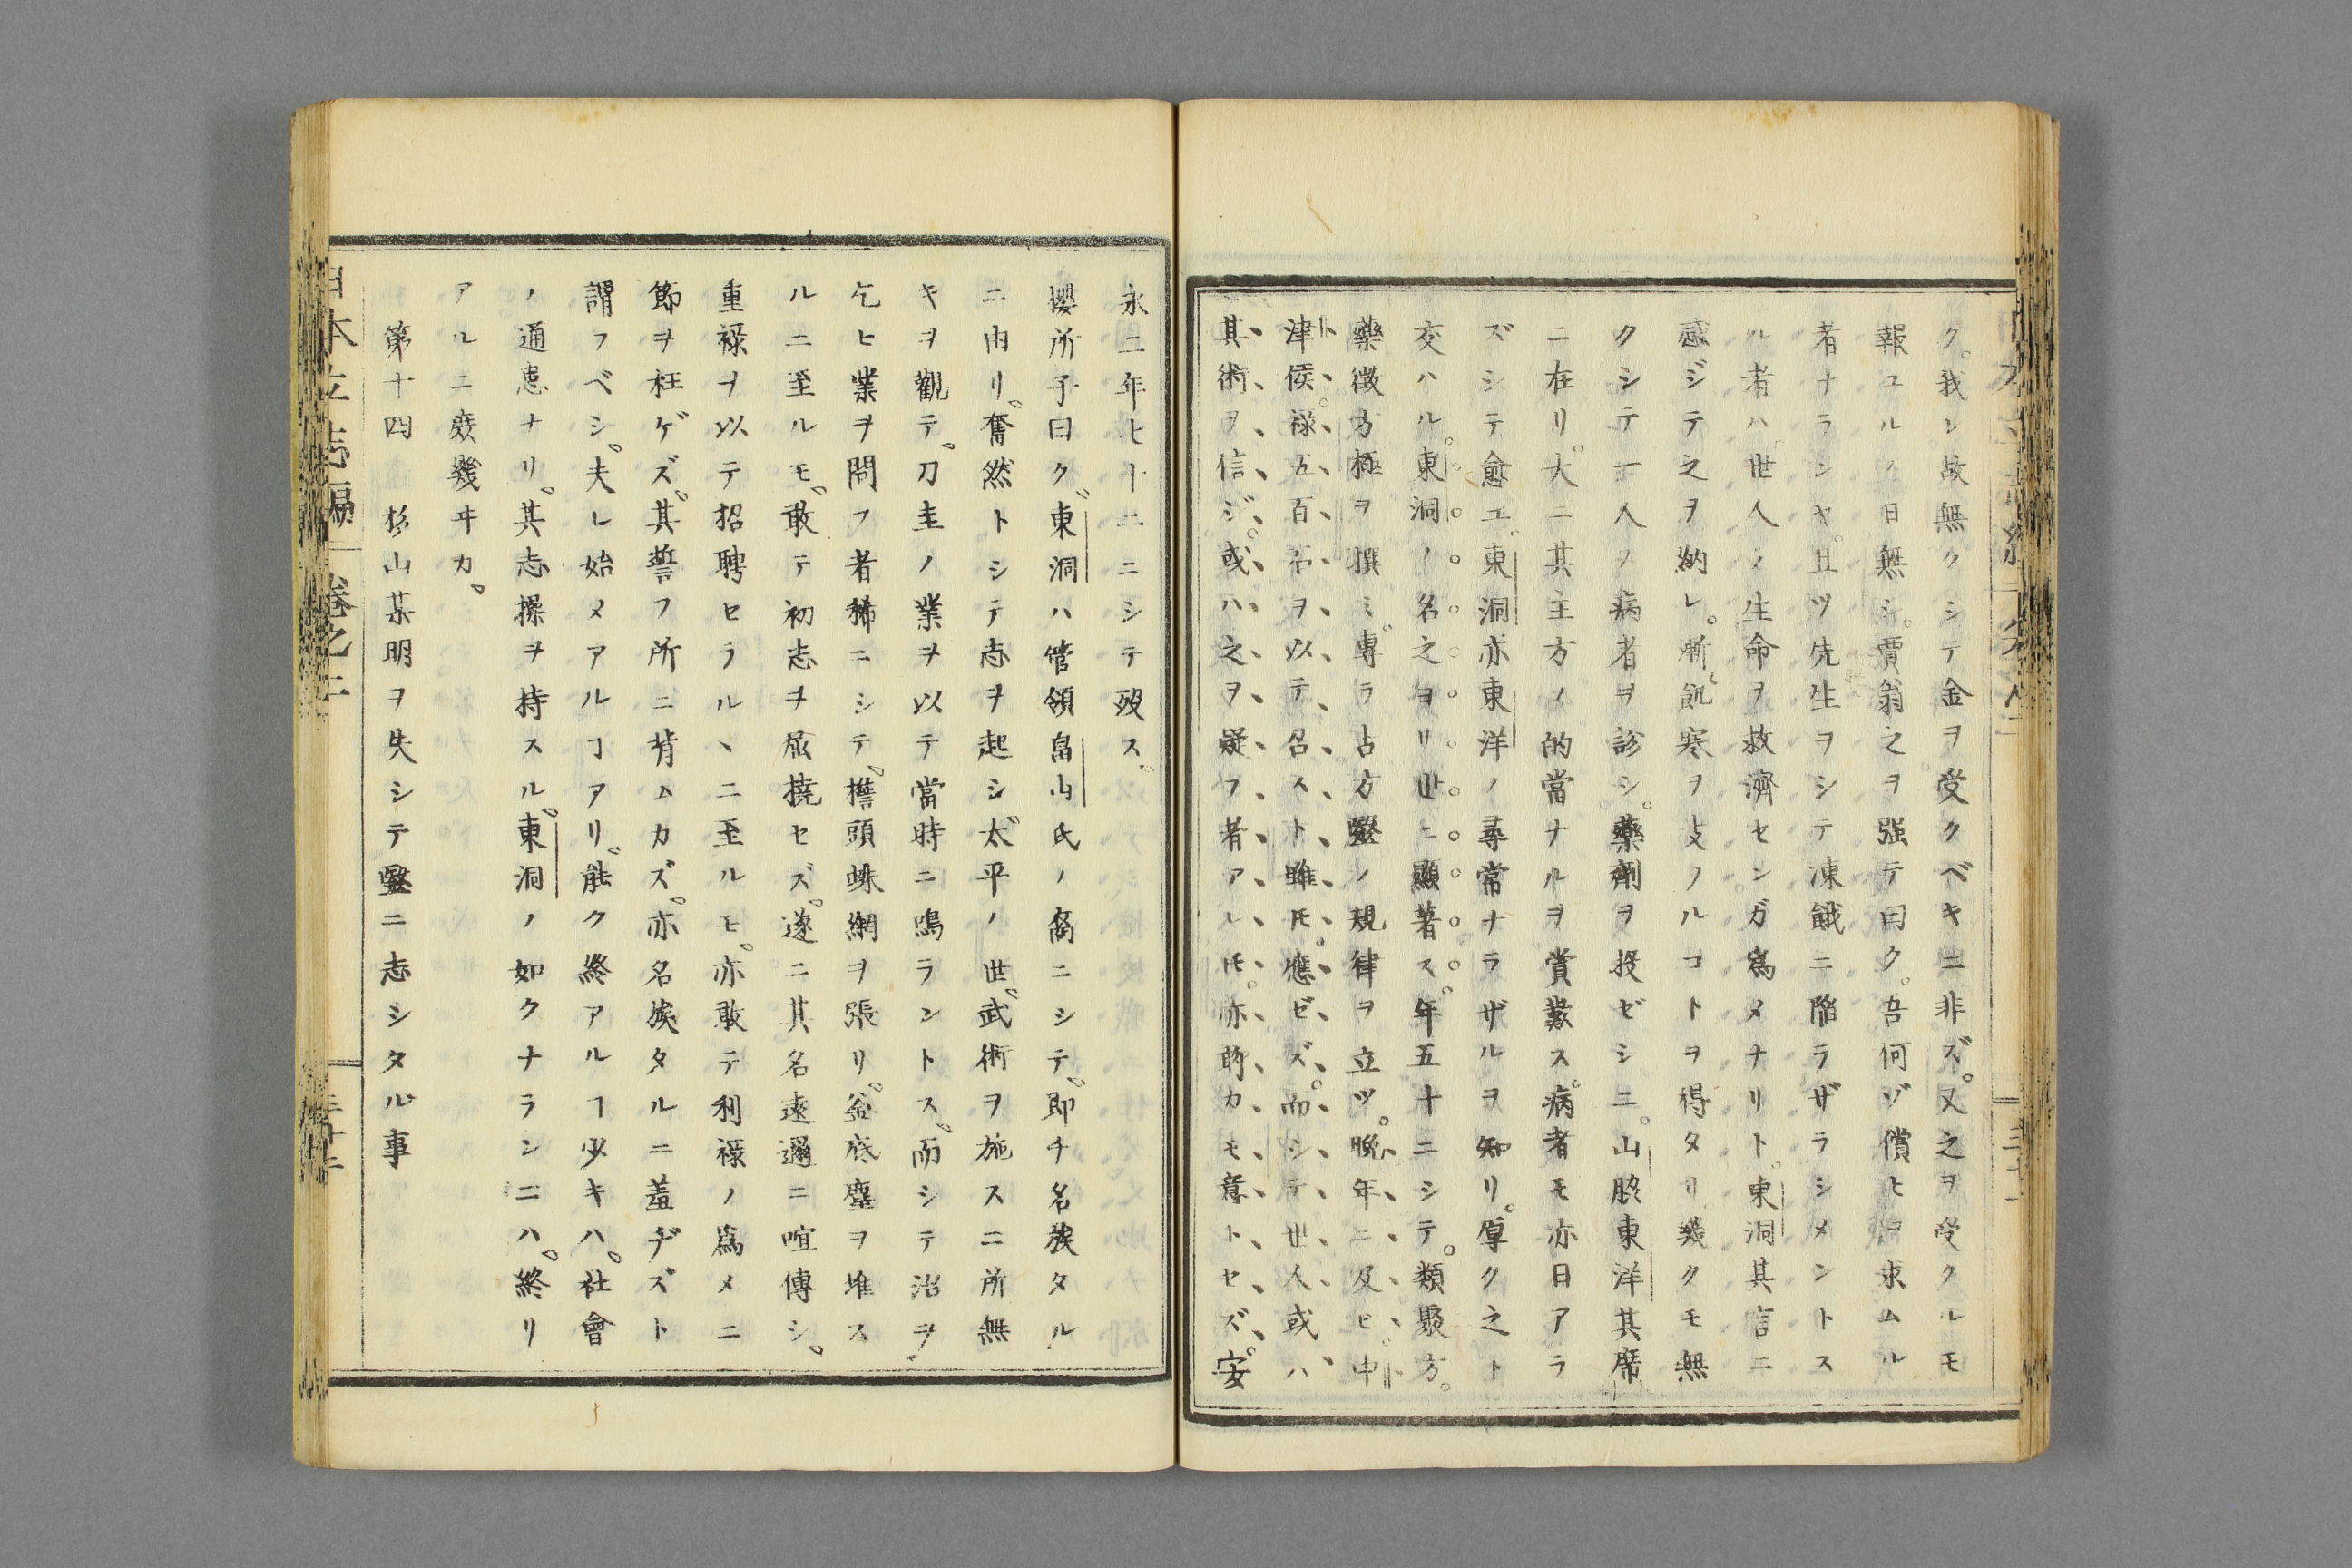 ク。我レ故無クシテ金ヲ受クベキニ非ズ。又之ヲ受クルモ
報ユルノ日無シ。賈翁之ヲ强テ曰ク。吾何ゾ償ヒヲ求ムル
者ナランヤ。且ツ先生ヲシテ凍餓ニ陷ラザラシメントス
ル者ハ。世人ノ生命ヲ救濟センガ爲メナリト。東洞其言ニ
感ジテ之ヲ納レ。漸ク飢寒ヲ支ノルコトヲ得タリ。幾クモ無
クシテ一人ノ病者ヲ診シ。藥劑ヲ投ゼシニ。山脇東洋其席
ニ在リ。大ニ其主方ノ的當ナルヲ賞歎ス。病者モ亦日アラ
ズシテ愈ユ。東洞亦東洋ノ尋常ナラザルヲ知リ。厚ク之ト
交ハル。東洞ノ名之ヨリ世ニ顯著ス。年五十ニシテ。類聚方。
藥徴方極ヲ撰ミ。專ラ古方毉ノ規律ヲ立ツ。晩年ニ及ヒ。中
津侯。禄五百石ヲ以テ召スト雖𪜈。應ゼズ。而シテ世人或ハ
其術ヲ信ジ。或ハ之ヲ疑フ者アレ𪜈。亦的カモ意トセズ。安
永二年七十二ニシテ歿ス。
櫻所子曰ク。東洞ハ管領畠山氏ノ裔ニシテ。即チ名族タル
ニ由リ。奮然トシテ志ヲ起シ。太平ノ世。武術ヲ施スニ所無
キヲ觀テ。刀圭ノ業ヲ以テ當時ニ鳴ラントス。而シテ治ヲ
乞ヒ業ヲ問フ者稀ニシテ。檐頭蛛網ヲ張リ。釜底塵ヲ堆ス
ルニ至ルモ。敢テ初志ヲ屈撓セズ。遂ニ其名遠邇ニ喧傳シ。
重禄ヲ以テ招聘セラルヽニ至ルモ。亦敢テ利禄ノ爲メニ
節ヲ枉ゲズ。其誓フ所ニ背ムカズ。亦名族タルニ羞ヂズト
謂フベシ。夫レ始メアルヿアリ。能ク終アルヿ少キハ。社會
ノ通患ナリ。其志操ヲ持スル。東洞ノ如クナランニハ。終リ
アルニ庶幾ヰカ。
第十四　杉山某明ヲ失シテ毉ニ志シタル事
日本立志編　卷之二　三十二